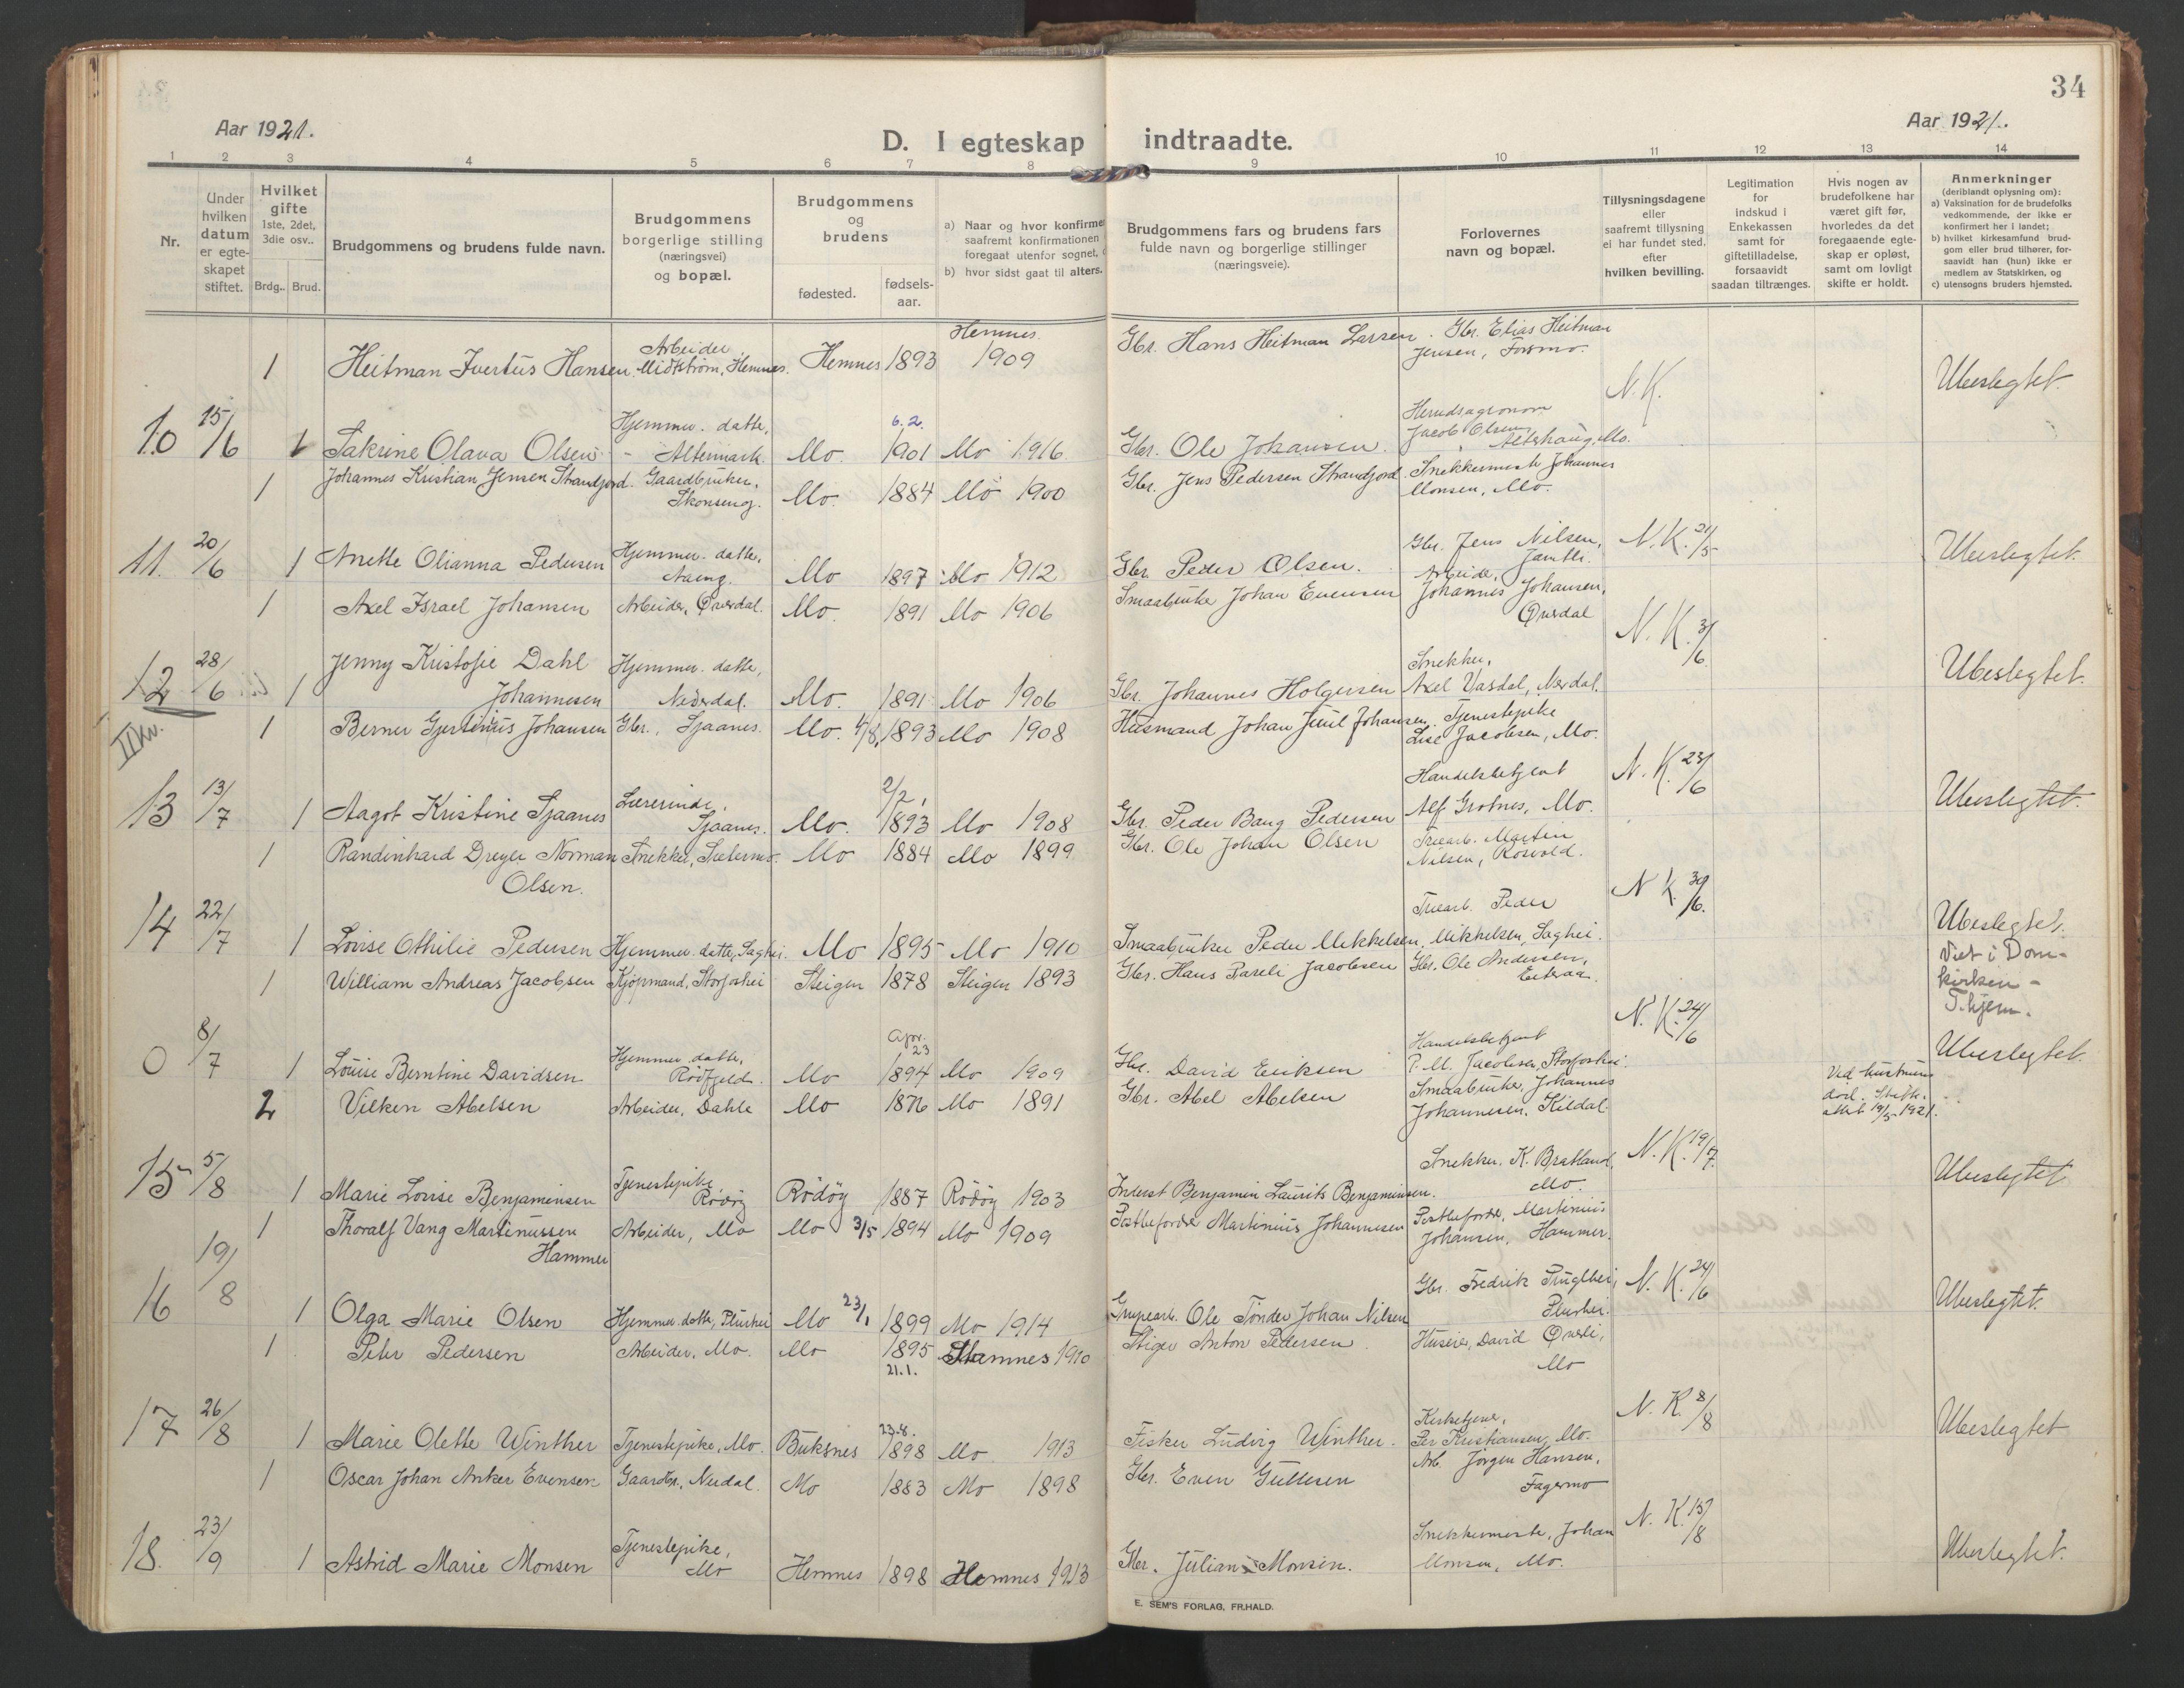 34
Aar 1921.
Aar 1921.
D. I egteskap indtraadte.
1 2 3 4 5 6 7 8 9 10 11 12 13 14
Nr.
Under
hvilken
datum
er egte-
skapet
stiftet.
Hvilket
gifte
1ste, 2det,
3die osv..
Brdg.. Brud.
Brudgommens og brudens fulde navn.
Brudgommens
borgerlige stilling
(næringsvei)
og bopæl.
Brudgommens
og
brudens
fødested.
fødsels-
aar.
a) Naar og hvor konfirme
saafremt konfirmationen
foregaat utenfor sognet,
b) hvor sidst gaat til alters.
Brudgommens fars og brudens fars
fulde navn og borgerlige stillinger
(næringsveie).
Forlovernes
navn og bopæl.
Tillysningsdagene
eller
saafremt tillysning
ei har fundet sted,
efter
hvilken bevilling.
Legitimation
for
indskud i
Enkekassen
samt for
giftetilladelse,
forsaavidt
saadan tiltrænges.
Hvis nogen av
brudefolkene har
været gift før,
hvorledes da det
foregaaende egte-
skap er opløst,
samt om lovligt
skifte er holdt.
Anmerkninger
(deriblandt oplysning om):
a) Vaksination for de brudefolks
vedkommende, der ikke er
konfirmert her i landet;
b) hvilket kirkesamfund brud-
gom eller brud tilhører, for-
saavidt han (hun) ikke er
medlem av Statskirken, og
c) utensogns bruders hjemsted.
1 Heitman Ivertus Hansen Arbeider
Midtstrøm, Hemnes. Hemnes 1893 Hemnes.
1909 Gbr. Hans Heitman Larsen. Gbr. Elias Heitman
Jensen, Formo.
N.K.
Ubeslegtet.
10 15/6 1 Sakrine Olava Olsen Hjemmev. datter,
Altermark. Mo. 6.2.
1901 Mo 1916. Gbr. Ole Johansen. Herredsagronom
Jacob Olsen,
Alterhaug, Mo.
1 Johannes Kristian Jensen Strandjord. Gaardbruker,
Skonseng. Mo. 1884 Mo 1900 Gbr. Jens Pedersen Strandjord. Snekkermester Johannes
Monsen, Mo.
11. 20/6 1 Anette Olianna Pedersen Hjemmev. datter,
Aaeng. Mo 1897 Mo 1912 Gbr. Peder Olsen. Gbr. Jens Nilsen,
Jamtli. N.K. 21/5 Ubeslegtet.
1 Axel Israel Johansen Arbeider, Øverdal. Mo. 1891 Mo 1906 Smaabruker Johan Evensen Arbeider,
Johannes Johansen,
Øverdal
12 28/6 1 Jenny Kristofie Dahl
Johannesen Hjemmev. datter,
Nederdal. Mo. 1891 Mo 1906 Gbr. Johannes Holgersen Snekker,
Axel Vasdal, Nerdal. N.K. 3/6. Ubeslegtet.
II Kv.
1 Berner Gjertinius Johansen Gbr., Sjaanes. Mo. 4/8. 1893 Mo 1908 Husmand Johan Juul Johansen. Tjenestepike
Lise Jacobsen, Mo.
13 13/7 1 Aagot Kristine Sjaanes Lærerinde,
Sjaanes. Mo. 2/2,
1893 Mo 1908 Gbr. Peder Bang Pedersen Handelsbetjent
Alf Grotnes, Mo. N.K. 23/6 Ubeslegtet.
1 Randinhard Dreyer Norman
Olsen. Snekker, Sætermo. Mo 1884 Mo 1899 Gbr. Ole Johan Olsen Træarb. Martin
Nilsen, Rosvold.
14 22/7 1 Lovise Othilie Pedersen Hjemmev. datter, Saghei. Mo 1895 Mo 1910 Smaabruker Peder Mikkelsen, Træarb. Peder
Mikkelsen, Saghei. N.K. 30/6. Ubeslegtet.
1 William Andreas Jacobsen Kjøpmand, Storfoshei Steigen 1878 Steigen 1893 Gbr. Hans Pareli Jacobsen Gbr. Ole Andersen,
Viet i Dom-
kirken -
T.hjem.
0 8/7 1 Louise Berntine Davidsen Hjemmev. datter,
Rødfjeld. Mo Apr.
23
1894 Mo 1909 Gbr. David Eriksen Handelsbetjent
P.M. Jacobsen, Storfoshei. N.K. 24/6 Ubeslegtet.
2 Vilken Abelsen Arbeider, Dahle Mo 1876 Mo 1891 Gbr. Abel Abelsen Smaabruker, Johannes
Johannesen, Kildal. Ved hustruens
død. Skifte-
attest 19/5 1921.
15 5/8 1 Marie Lovise Benjaminsen Tjenestepike,
Rødøy Rødøy 1887 Rødøy 1903 Inderst Benjamin Laurits Benjaminsen. Snekker, K. Bratland,
Mo. N.K. 19/7. Ubeslegtet
1 Thoralf Vang Martinussen
Hammer Arbeider, Mo Mo 3/5 1894 Mo 1909 Postbefordrer Martinius Johannesen Postbefordrer, Martinius
Johansen, Hammer.
16 19/8 1 Olga Marie Olsen Hjemmev. datter, Plurhei Mo 23/1 1899 Mo 1914 Grupearb. Ole Tønder Johan Nilsen Gbr. Fredrik Truglhei,
Plurhei. N.K. 24/6 Ubeslegtet.
1 Peter Pedersen Arbeider, Mo. Mo 1895
21.1. Stamnes 1910 Stiger Anton Pedersen. Huseier, David Øverli,
Mo
17 26/8 1 Marie Olette Winther Tjenestepike, Mo. Buksnes 23.8.
1898 Mo 1913 Fisker Ludvig Winther. Kirketjener,
Per Kristiansen, Mo. N.K. 8/8 Ubeslegtet
1 Oscar Johan Anker Evensen Gaardbr., Nerdal. Mo 1883 Mo 1898 Gbr. Even Gullesen Arb. Jørgen Hansen,
Fagermo
18. 23/9 1 Astrid Marie Monsen Tjenestepike,
Mo Hemnes 1898 Hemnes 1913 Gbr. Julian Monsen. Snekkermester, Johan
Monsen, Mo. N.K. 15/8 Ubeslegtet.
E. SEM'S FORLAG, FR.HALD.